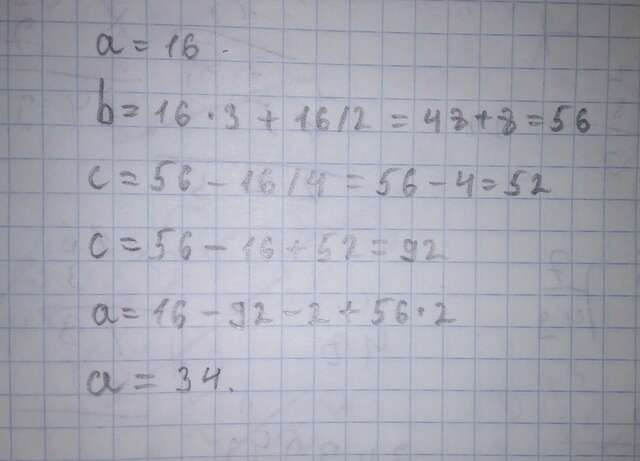 a = 16.
b = 16 · 3 + 16/2 = 48 + 8 = 56
c = 56 - 16/4 = 56 - 4 = 52
c = 56 - 16 + 52 = 92
a = 16 - 92 - 2 + 56 · 2
a = 34.